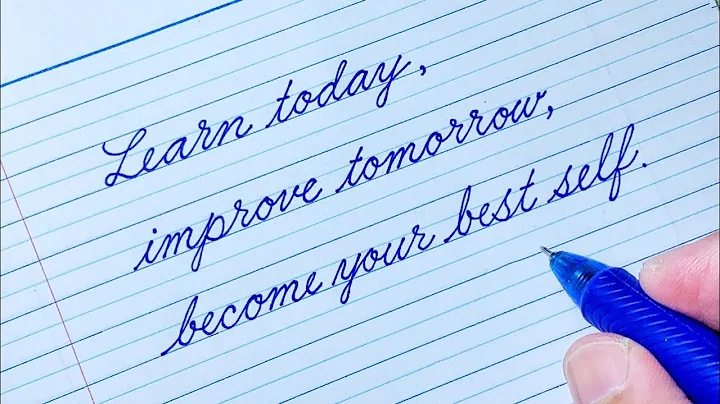 Learn today,
improve tomorrow,
become your best self.